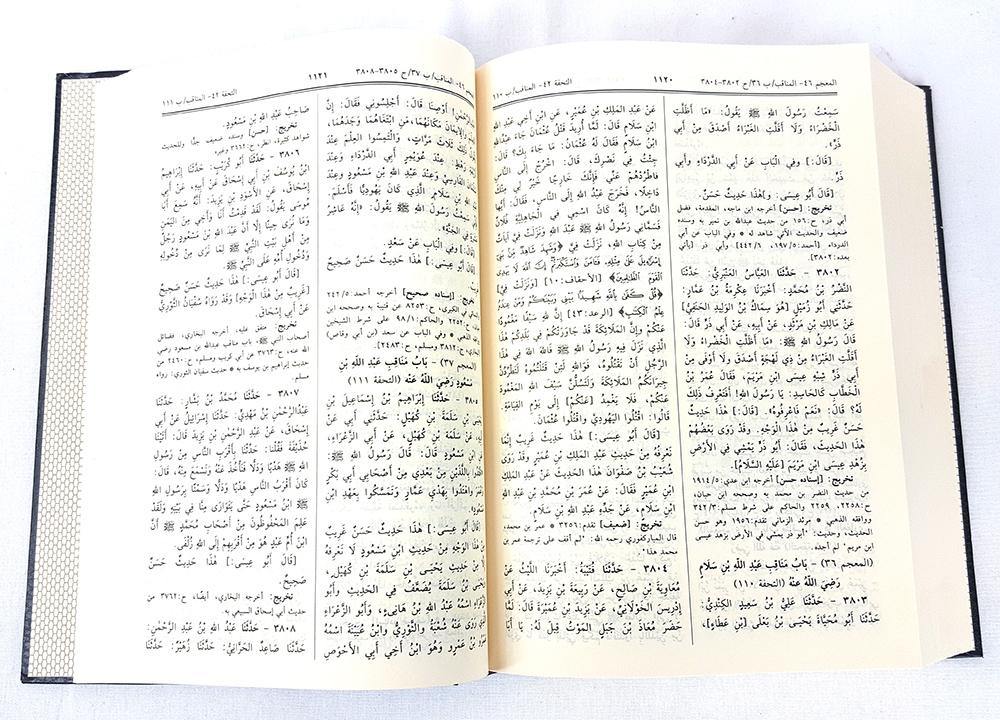 المعجم ٤٦- المناقب/ ب ٣٦/ح ٣٨٠٢-٣٨٠٤
١١٢٠
التحفة ٤٢- المناقب/ ب ١١٠
سَمِعْتُ رَسُولَ اللهِ ﷺ يَقُولُ: «مَا أَظَلَّتِ
الْخَضْرَاءُ وَلَا أَقَلَّتِ الْغَبْرَاءُ أَصْدَقَ مِنْ أَبِي
ذَرٍّ».
[قَالَ]: وَفِي الْبَابِ عَنْ أَبِي الدَّرْدَاءِ وَأَبِي
ذَرٍّ.
[قَالَ أَبُو عِيسَى: وَ]هَذَا حَدِيثٌ حَسَنٌ.
تخريج: [حسن] أخرجه ابن ماجه، المقدمة، فضل
أبي ذر، ح:١٥٦ من حديث عبدالله بن نمير به وسنده
ضعيف والحديث الآتي شاهد له * وفي الباب عن أبي
الدرداء [أحمد:١٩٧/٥، ٤٤٢/٦] وأبي ذر [يأتي
بعده:٣٨٠٢].
٣٨٠٢ - حَدَّثَنَا الْعَبَّاسُ الْعَنْبَرِيُّ: حَدَّثَنَا
النَّضْرُ بْنُ مُحَمَّدٍ: أَخْبَرَنَا عِكْرِمَةُ بْنُ عَمَّارٍ:
حَدَّثَنِي أَبُو زُمَيْلٍ [هُوَ سِمَاكُ بْنُ الْوَلِيدِ الْحَنَفِيُّ]
عَنْ مَالِكِ بْنِ مَرْثَدٍ، عَنْ أَبِيهِ، عَنْ أَبِي ذَرٍّ قَالَ:
قَالَ رَسُولُ اللهِ ﷺ: «مَا أَظَلَّتِ الْخَضْرَاءُ وَلَا
أَقَلَّتِ الْغَبْرَاءُ مِنْ ذِي لَهْجَةٍ أَصْدَقَ وَلَا أَوْفَى مِنْ
أَبِي ذَرٍّ شِبْهِ عِيسَى ابْنِ مَرْيَمَ»، فَقَالَ عُمَرُ بْنُ
الْخَطَّابِ كَالْحَاسِدِ: يَا رَسُولَ اللهِ! أَفَتَعْرِفُ ذَلِكَ
لَهُ؟ قَالَ: «نَعَمْ فَاعْرِفُوهُ». [قَالَ:] هَذَا حَدِيثٌ
حَسَنٌ غَرِيبٌ مِنْ هَذَا الْوَجْهِ. وَقَدْ رَوَى بَعْضُهُمْ
هَذَا الْحَدِيثَ، فَقَالَ: أَبُو ذَرٍّ يَمْشِي فِي الْأَرْضِ
بِزُهْدِ عِيسَى ابْنِ مَرْيَمَ [عَلَيْهِ السَّلَامُ].
تخريج: [إسناده حسن] أخرجه ابن عدي:١٩١٤/٥
من حديث النضر بن محمد به وصححه ابن حبان،
ح:٢٢٥٨، ٢٢٥٩ والحاكم على شرط مسلم:٣٤٢/٣
ووافقه الذهبي * مرثد الزماني تقدم:١٩٥٦ وهو حسن
الحديث، وحديث: "أبو ذر يمشي في الأرض بزهد عيسى
ابن مريم" لم أجده.
(المعجم ٣٦) - بَابُ مَنَاقِبِ عَبْدِ اللهِ بْنِ سَلَامٍ
رَضِيَ اللهُ عَنْهُ (التحفة ١١٠)
٣٨٠٣ - حَدَّثَنَا عَلِيُّ بْنُ سَعِيدٍ الْكِنْدِيُّ:
حَدَّثَنَا أَبُو مُحَيَّاةَ يَحْيَى بْنُ يَعْلَى [بْنِ عَطَاءٍ]،
عَنْ عَبْدِ الْمَلِكِ بْنِ عُمَيْرٍ، عَنِ ابْنِ أَخِي عَبْدِ اللهِ
ابْنِ سَلَامٍ قَالَ: لَمَّا أُرِيدَ قَتْلُ عُثْمَانَ جَاءَ عَبْدُ اللهِ
ابْنُ سَلَامٍ فَقَالَ لَهُ عُثْمَانُ: مَا جَاءَ بِكَ؟ قَالَ:
جِئْتُ فِي نَصْرِكَ، قَالَ: اخْرُجْ إِلَى النَّاسِ
فَاطْرُدْهُمْ عَنِّي فَإِنَّكَ خَارِجًا خَيْرٌ لِي مِنْكَ
دَاخِلًا، فَخَرَجَ عَبْدُ اللهِ إِلَى النَّاسِ، فَقَالَ: أَيُّهَا
النَّاسُ! إِنَّهُ كَانَ اسْمِي فِي الْجَاهِلِيَّةِ فُلَانٌ
فَسَمَّانِي رَسُولُ اللهِ ﷺ عَبْدَ اللهِ وَنَزَلَتْ فِيَّ آيَاتٌ
مِنْ كِتَابِ اللهِ، نَزَلَتْ فِيَّ ﴿وَشَهِدَ شَاهِدٌ مِنْ بَنِي
إِسْرَائِيلَ عَلَى مِثْلِهِ فَآمَنَ وَاسْتَكْبَرْتُمْ إِنَّ اللهَ لَا يَهْدِي
الْقَوْمَ الظَّالِمِينَ﴾ [الأحقاف:١٠] وَنَزَلَتْ فِيَّ
﴿قُلْ كَفَى بِاللهِ شَهِيدًا بَيْنِي وَبَيْنَكُمْ وَمَنْ عِنْدَهُ
عِلْمُ الْكِتَابِ﴾ [الرعد:٤٣] إِنَّ لِلهِ سَيْفًا مَغْمُودًا
عَنْكُمْ وَإِنَّ الْمَلَائِكَةَ قَدْ جَاوَرَتْكُمْ فِي بَلَدِكُمْ هَذَا
الَّذِي نَزَلَ فِيهِ رَسُولُ اللهِ ﷺ فَاللهَ اللهَ فِي هَذَا
الرَّجُلِ أَنْ تَقْتُلُوهُ، فَوَاللهِ لَئِنْ قَتَلْتُمُوهُ لَتَطْرُدُنَّ
جِيرَانَكُمُ الْمَلَائِكَةَ وَلَتَسُلُّنَّ سَيْفَ اللهِ الْمَغْمُودَ
عَنْكُمْ، فَلَا يُغْمَدُ [عَنْكُمْ] إِلَى يَوْمِ الْقِيَامَةِ.
قَالُوا: اقْتُلُوا الْيَهُودِيَّ وَاقْتُلُوا عُثْمَانَ.
[قَالَ أَبُو عِيسَى:] هَذَا حَدِيثٌ غَرِيبٌ إِنَّمَا
نَعْرِفُهُ مِنْ حَدِيثِ عَبْدِ الْمَلِكِ بْنِ عُمَيْرٍ. وَقَدْ رَوَى
شُعَيْبُ بْنُ صَفْوَانَ هَذَا الْحَدِيثَ عَنْ عَبْدِ الْمَلِكِ
ابْنِ عُمَيْرٍ فَقَالَ: عَنْ عُمَرَ بْنِ مُحَمَّدِ بْنِ عَبْدِ اللهِ
ابْنِ سَلَامٍ، عَنْ جَدِّهِ عَبْدِ اللهِ بْنِ سَلَامٍ.
تخريج: [ضعيف] تقدم:٣٢٥٦ * عمر بن محمد،
قال المباركفوري رحمه الله: "لم أقف على ترجمة عمر بن
محمد هذا".
٣٨٠٤ - حَدَّثَنَا قُتَيْبَةُ: أَخْبَرَنَا اللَّيْثُ عَنْ
مُعَاوِيَةَ بْنِ صَالِحٍ، عَنْ رَبِيعَةَ بْنِ يَزِيدَ، عَنْ أَبِي
إِدْرِيسَ الْخَوْلَانِيِّ، عَنْ يَزِيدَ بْنِ عُمَيْرَةَ قَالَ: لَمَّا
حَضَرَ مُعَاذَ بْنَ جَبَلٍ الْمَوْتُ قِيلَ لَهُ: يَا أَبَا
٤٦- المناقب/ ب ٣٧/ح ٣٨٠٥-٣٨٠٨
١١٢١
التحفة ٤٢- المناقب/ ب ١١١
أَوْصِنَا قَالَ: أَجْلِسُونِي فَقَالَ: إِنَّ
وَالْإِيمَانَ مَكَانَهُمَا، مَنِ ابْتَغَاهُمَا وَجَدَهُمَا،
ذَلِكَ ثَلَاثَ مَرَّاتٍ، وَالْتَمِسُوا الْعِلْمَ عِنْدَ
رَهْطٍ: عِنْدَ عُوَيْمِرٍ أَبِي الدَّرْدَاءِ وَعِنْدَ
الْفَارِسِيِّ وَعِنْدَ عَبْدِ اللهِ بْنِ مَسْعُودٍ وَعِنْدَ
بْنِ سَلَامٍ الَّذِي كَانَ يَهُودِيًّا فَأَسْلَمَ.
سَمِعْتُ رَسُولَ اللهِ ﷺ يَقُولُ: «إِنَّهُ عَاشِرُ
فِي الْجَنَّةِ».
وَفِي الْبَابِ عَنْ سَعْدٍ.
[قَالَ أَبُو عِيسَى:] هَذَا حَدِيثٌ حَسَنٌ صَحِيحٌ
تخريج: [إسناده صحيح] أخرجه أحمد:٢٤٢/٥
في الكبرى، ح:٨٢٥٣ عن قتيبة به وصححه
ح:٢٢٥٢ والحاكم:٩٨/١ على شرط الشيخين
الذهبي * وفي الباب عن سعد [بن أبي وقاص]
ح:٣٨١٢ ومسلم، ح:٢٤٨٣].
٣٧) - بَابُ مَنَاقِبِ عَبْدِ اللهِ بْنِ
مَسْعُودٍ رَضِيَ اللهُ عَنْهُ (التحفة ١١١)
٣٨٠٥ - حَدَّثَنَا إِبْرَاهِيمُ بْنُ إِسْمَاعِيلَ بْنِ
سَلَمَةَ بْنِ كُهَيْلٍ: حَدَّثَنِي أَبِي عَنْ
عَنْ سَلَمَةَ بْنِ كُهَيْلٍ، عَنْ أَبِي الزَّعْرَاءِ،
مَسْعُودٍ قَالَ: قَالَ رَسُولُ اللهِ ﷺ:
بِاللَّذَيْنِ مِنْ بَعْدِي مِنْ أَصْحَابِي أَبِي بَكْرٍ
وَاهْتَدُوا بِهَدْيِ عَمَّارٍ وَتَمَسَّكُوا بِعَهْدِ ابْنِ
[قَالَ أَبُو عِيسَى:] هَذَا حَدِيثٌ حَسَنٌ غَرِيبٌ
هَذَا الْوَجْهِ مِنْ حَدِيثِ ابْنِ مَسْعُودٍ لَا نَعْرِفُهُ
مِنْ حَدِيثِ يَحْيَى بْنِ سَلَمَةَ بْنِ كُهَيْلٍ،
بْنُ سَلَمَةَ يُضَعَّفُ فِي الْحَدِيثِ وَأَبُو
الزَّعْرَاءِ اسْمُهُ عَبْدُ اللهِ بْنُ هَانِئٍ، وَأَبُو الزَّعْرَاءِ
الَّذِي رَوَى عَنْهُ شُعْبَةُ وَالثَّوْرِيُّ وَابْنُ عُيَيْنَةَ اسْمُهُ
عَمْرُو بْنُ عَمْرٍو وَهُوَ ابْنُ أَخِي أَبِي الْأَحْوَصِ
صَاحِبُ عَبْدِ اللهِ بْنِ مَسْعُودٍ.
تخريج: [حسن] وسنده ضعيف جدًّا وللحديث
شواهد كثيرة، انظر، ح:٣٦٦٢ وغيره.
٣٨٠٦ - حَدَّثَنَا أَبُو كُرَيْبٍ: حَدَّثَنَا إِبْرَاهِيمُ
ابْنُ يُوسُفَ بْنِ أَبِي إِسْحَاقَ عَنْ أَبِيهِ، عَنْ أَبِي
إِسْحَاقَ، عَنِ الْأَسْوَدِ بْنِ يَزِيدَ: أَنَّهُ سَمِعَ أَبَا
مُوسَى يَقُولُ: لَقَدْ قَدِمْتُ أَنَا وَأَخِي مِنَ الْيَمَنِ
وَمَا نُرَى حِينًا إِلَّا أَنَّ عَبْدَ اللهِ بْنَ مَسْعُودٍ رَجُلٌ
مِنْ أَهْلِ بَيْتِ النَّبِيِّ ﷺ لِمَا نَرَى مِنْ دُخُولِهِ
وَدُخُولِ أُمِّهِ عَلَى النَّبِيِّ ﷺ.
[قَالَ أَبُو عِيسَى:] هَذَا حَدِيثٌ حَسَنٌ صَحِيحٌ
[غَرِيبٌ مِنْ هَذَا الْوَجْهِ] وَقَدْ رَوَاهُ سُفْيَانُ الثَّوْرِيُّ
عَنْ أَبِي إِسْحَاقَ.
تخريج: متفق عليه، أخرجه البخاري، فضائل
أصحاب النبي ﷺ، باب مناقب عبدالله بن مسعود رضي
الله عنه، ح:٣٧٦٣ عن أبي كريب ومسلم، ح:٢٤٦٠ من
حديث إبراهيم بن يوسف به * حديث سفيان الثوري: رواه
مسلم.
٣٨٠٧ - حَدَّثَنَا مُحَمَّدُ بْنُ بَشَّارٍ: حَدَّثَنَا
عَبْدُ الرَّحْمَنِ بْنُ مَهْدِيٍّ: حَدَّثَنَا إِسْرَائِيلُ عَنْ أَبِي
إِسْحَاقَ، عَنْ عَبْدِ الرَّحْمَنِ بْنِ يَزِيدَ قَالَ: أَتَيْنَا
حُذَيْفَةَ فَقُلْنَا: حَدِّثْنَا بِأَقْرَبِ النَّاسِ مِنْ رَسُولِ
اللهِ ﷺ هَدْيًا وَدَلًّا فَنَأْخُذَ عَنْهُ وَنَسْمَعَ مِنْهُ، قَالَ:
كَانَ أَقْرَبَ النَّاسِ هَدْيًا وَدَلًّا وَسَمْتًا بِرَسُولِ اللهِ
ﷺ ابْنُ مَسْعُودٍ حَتَّى يَتَوَارَى مِنَّا فِي بَيْتِهِ وَلَقَدْ
عَلِمَ الْمَحْفُوظُونَ مِنْ أَصْحَابِ مُحَمَّدٍ ﷺ أَنَّ
ابْنَ أُمِّ عَبْدٍ هُوَ مِنْ أَقْرَبِهِمْ إِلَى اللهِ زُلْفَى.
[قَالَ أَبُو عِيسَى:] هَذَا حَدِيثٌ حَسَنٌ
صَحِيحٌ.
تخريج: أخرجه البخاري، أيضًا، ح:٣٧٦٢ من
حديث أبي إسحاق السبيعي به.
٣٨٠٨ - حَدَّثَنَا عَبْدُ اللهِ بْنُ عَبْدِ الرَّحْمَنِ:
حَدَّثَنَا صَاعِدٌ الْحَرَّانِيُّ: حَدَّثَنَا زُهَيْرٌ: حَدَّثَنَا